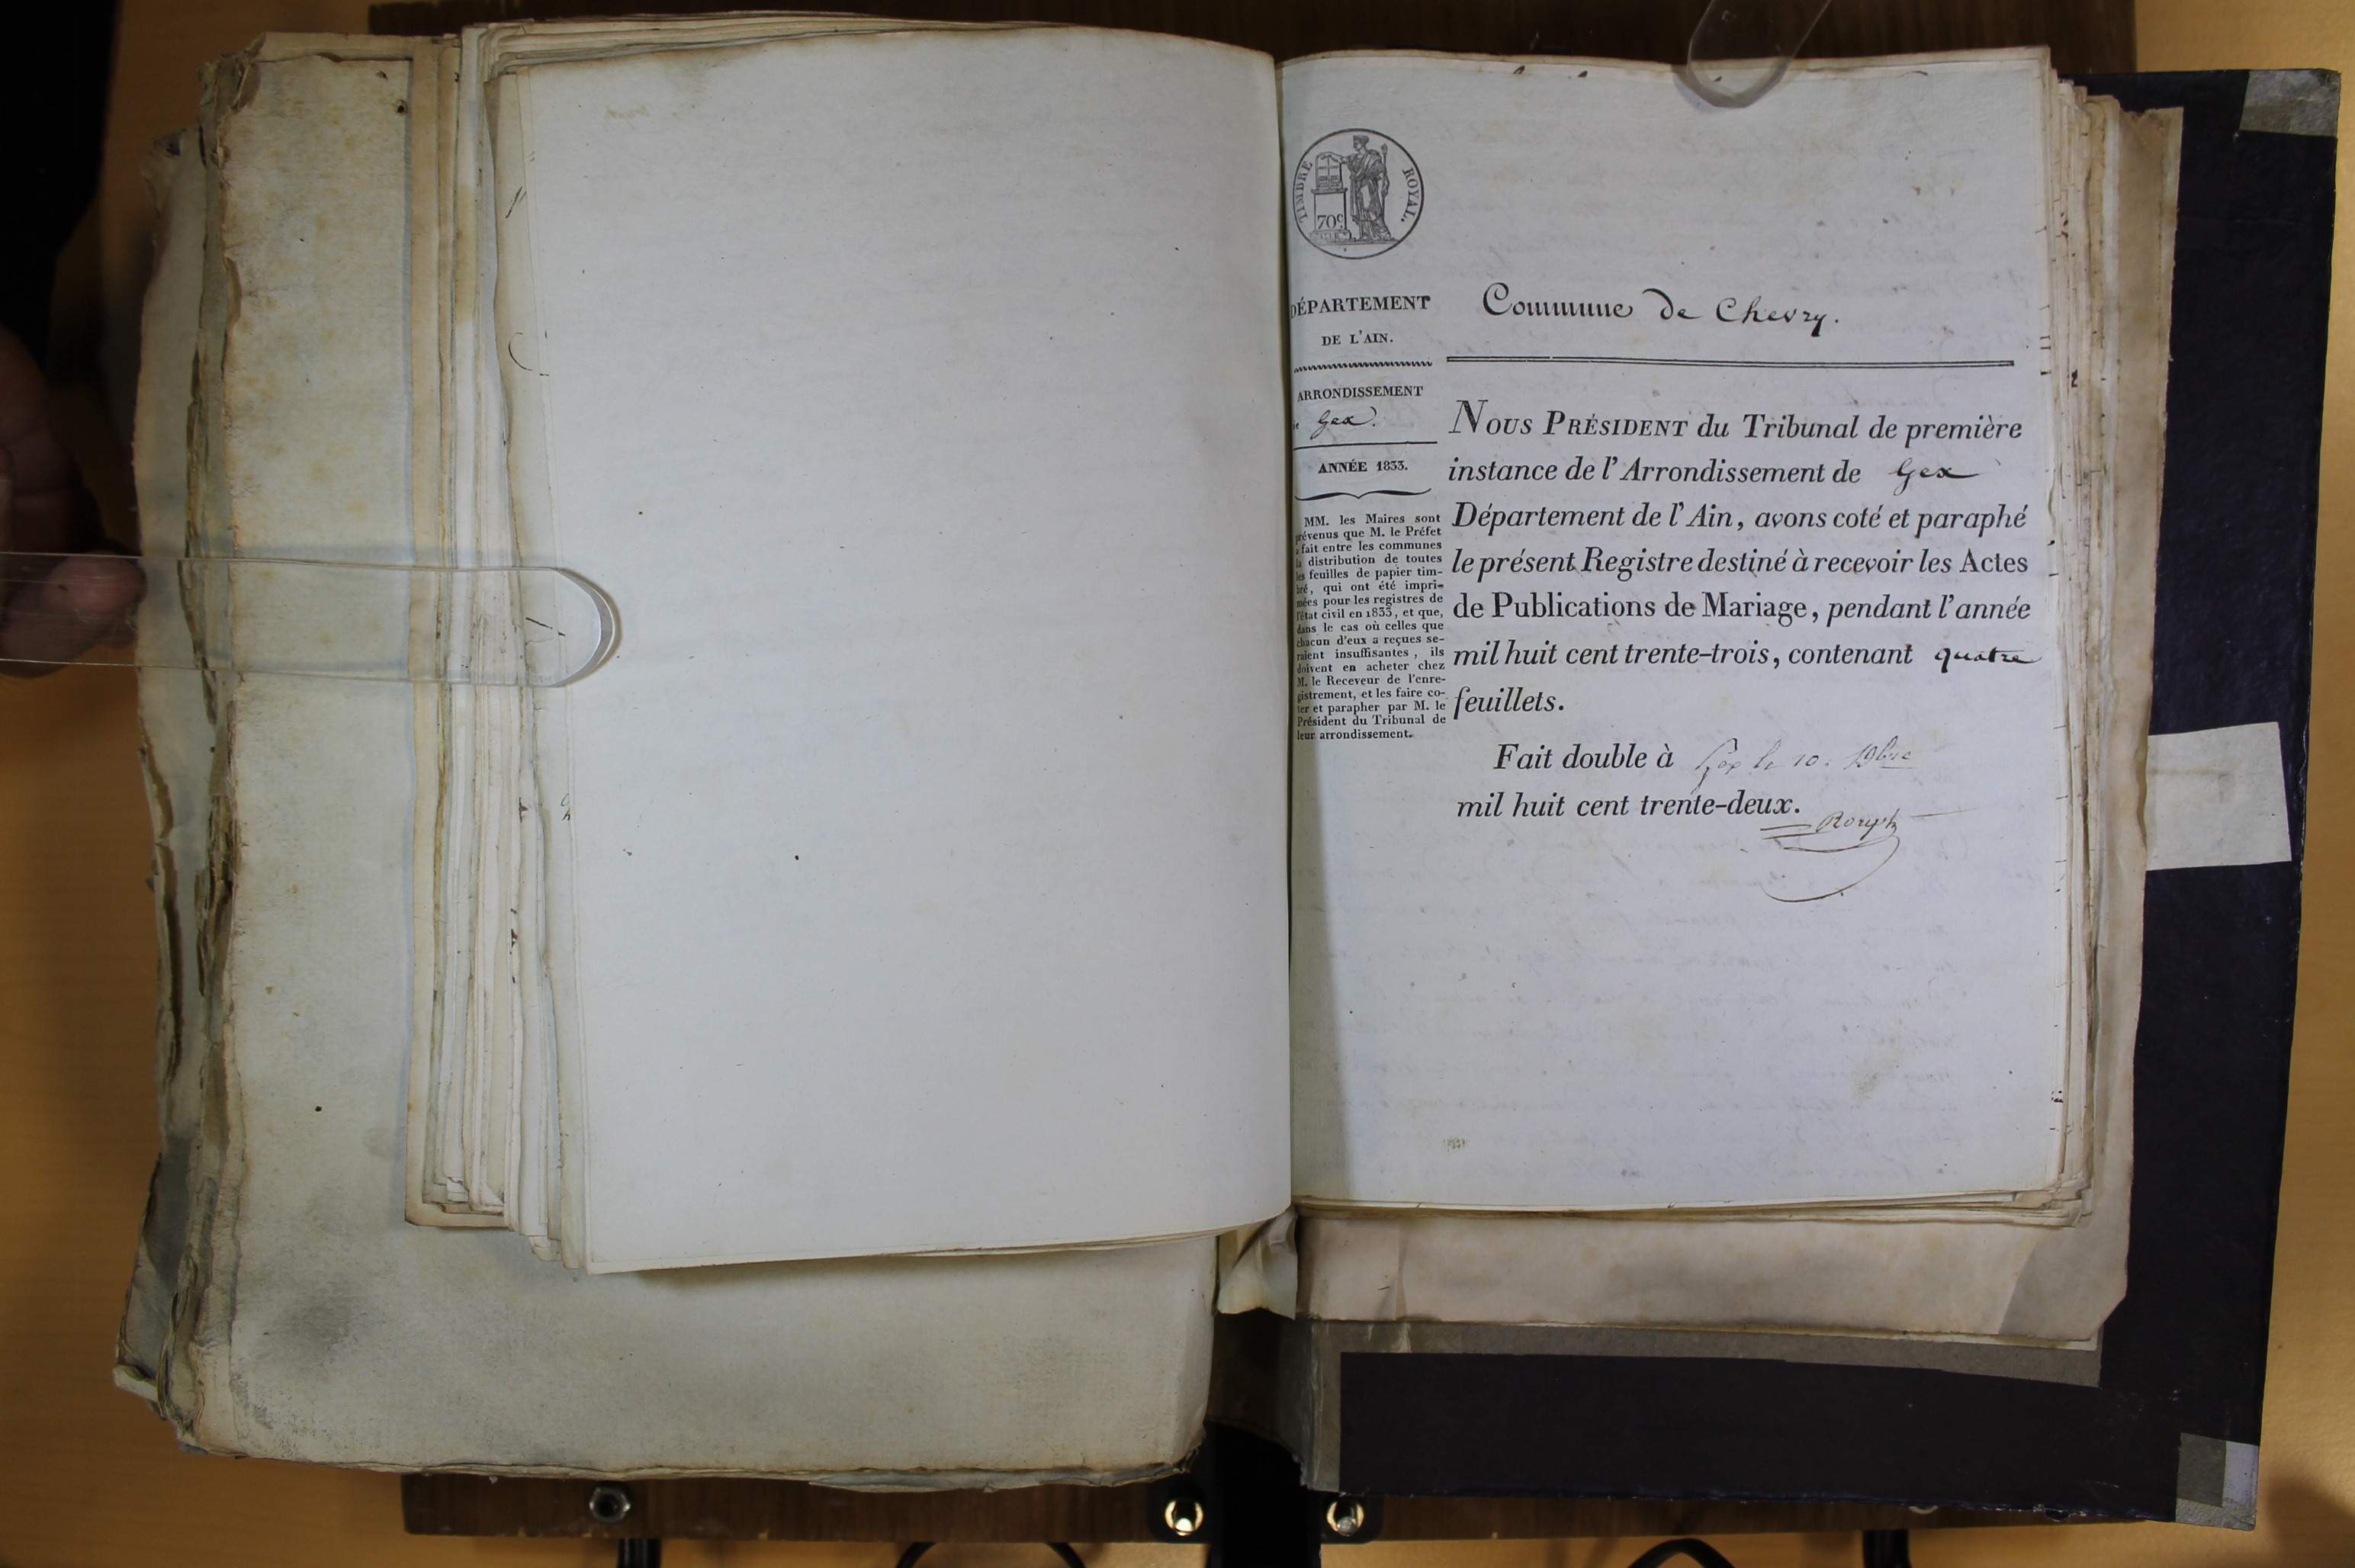 TIMBRE ROYAL.
70c.
DÉPARTEMENT
DE L'AIN.
ARRONDISSEMENT
de Gex.
ANNÉE 1833.
MM. les Maires sont
prévenus que M. le Préfet
a fait entre les communes
la distribution de toutes
les feuilles de papier tim-
bré, qui ont été impri-
mées pour les registres de
l'état civil en 1833, et que,
dans le cas où celles que
chacun d'eux a reçues se-
raient insuffisantes, ils
doivent en acheter chez
M. le Receveur de l'enre-
gistrement, et les faire co-
ter et parapher par M. le
Président du Tribunal de
leur arrondissement.
Commune de Chevry.
NOUS PRÉSIDENT du Tribunal de première
instance de l'Arrondissement de Gex
Département de l'Ain, avons coté et paraphé
le présent Registre destiné à recevoir les Actes
de Publications de Mariage, pendant l'année
mil huit cent trente-trois, contenant quatre
feuillets.
Fait double à Gex le 10.
mil huit cent trente-deux.